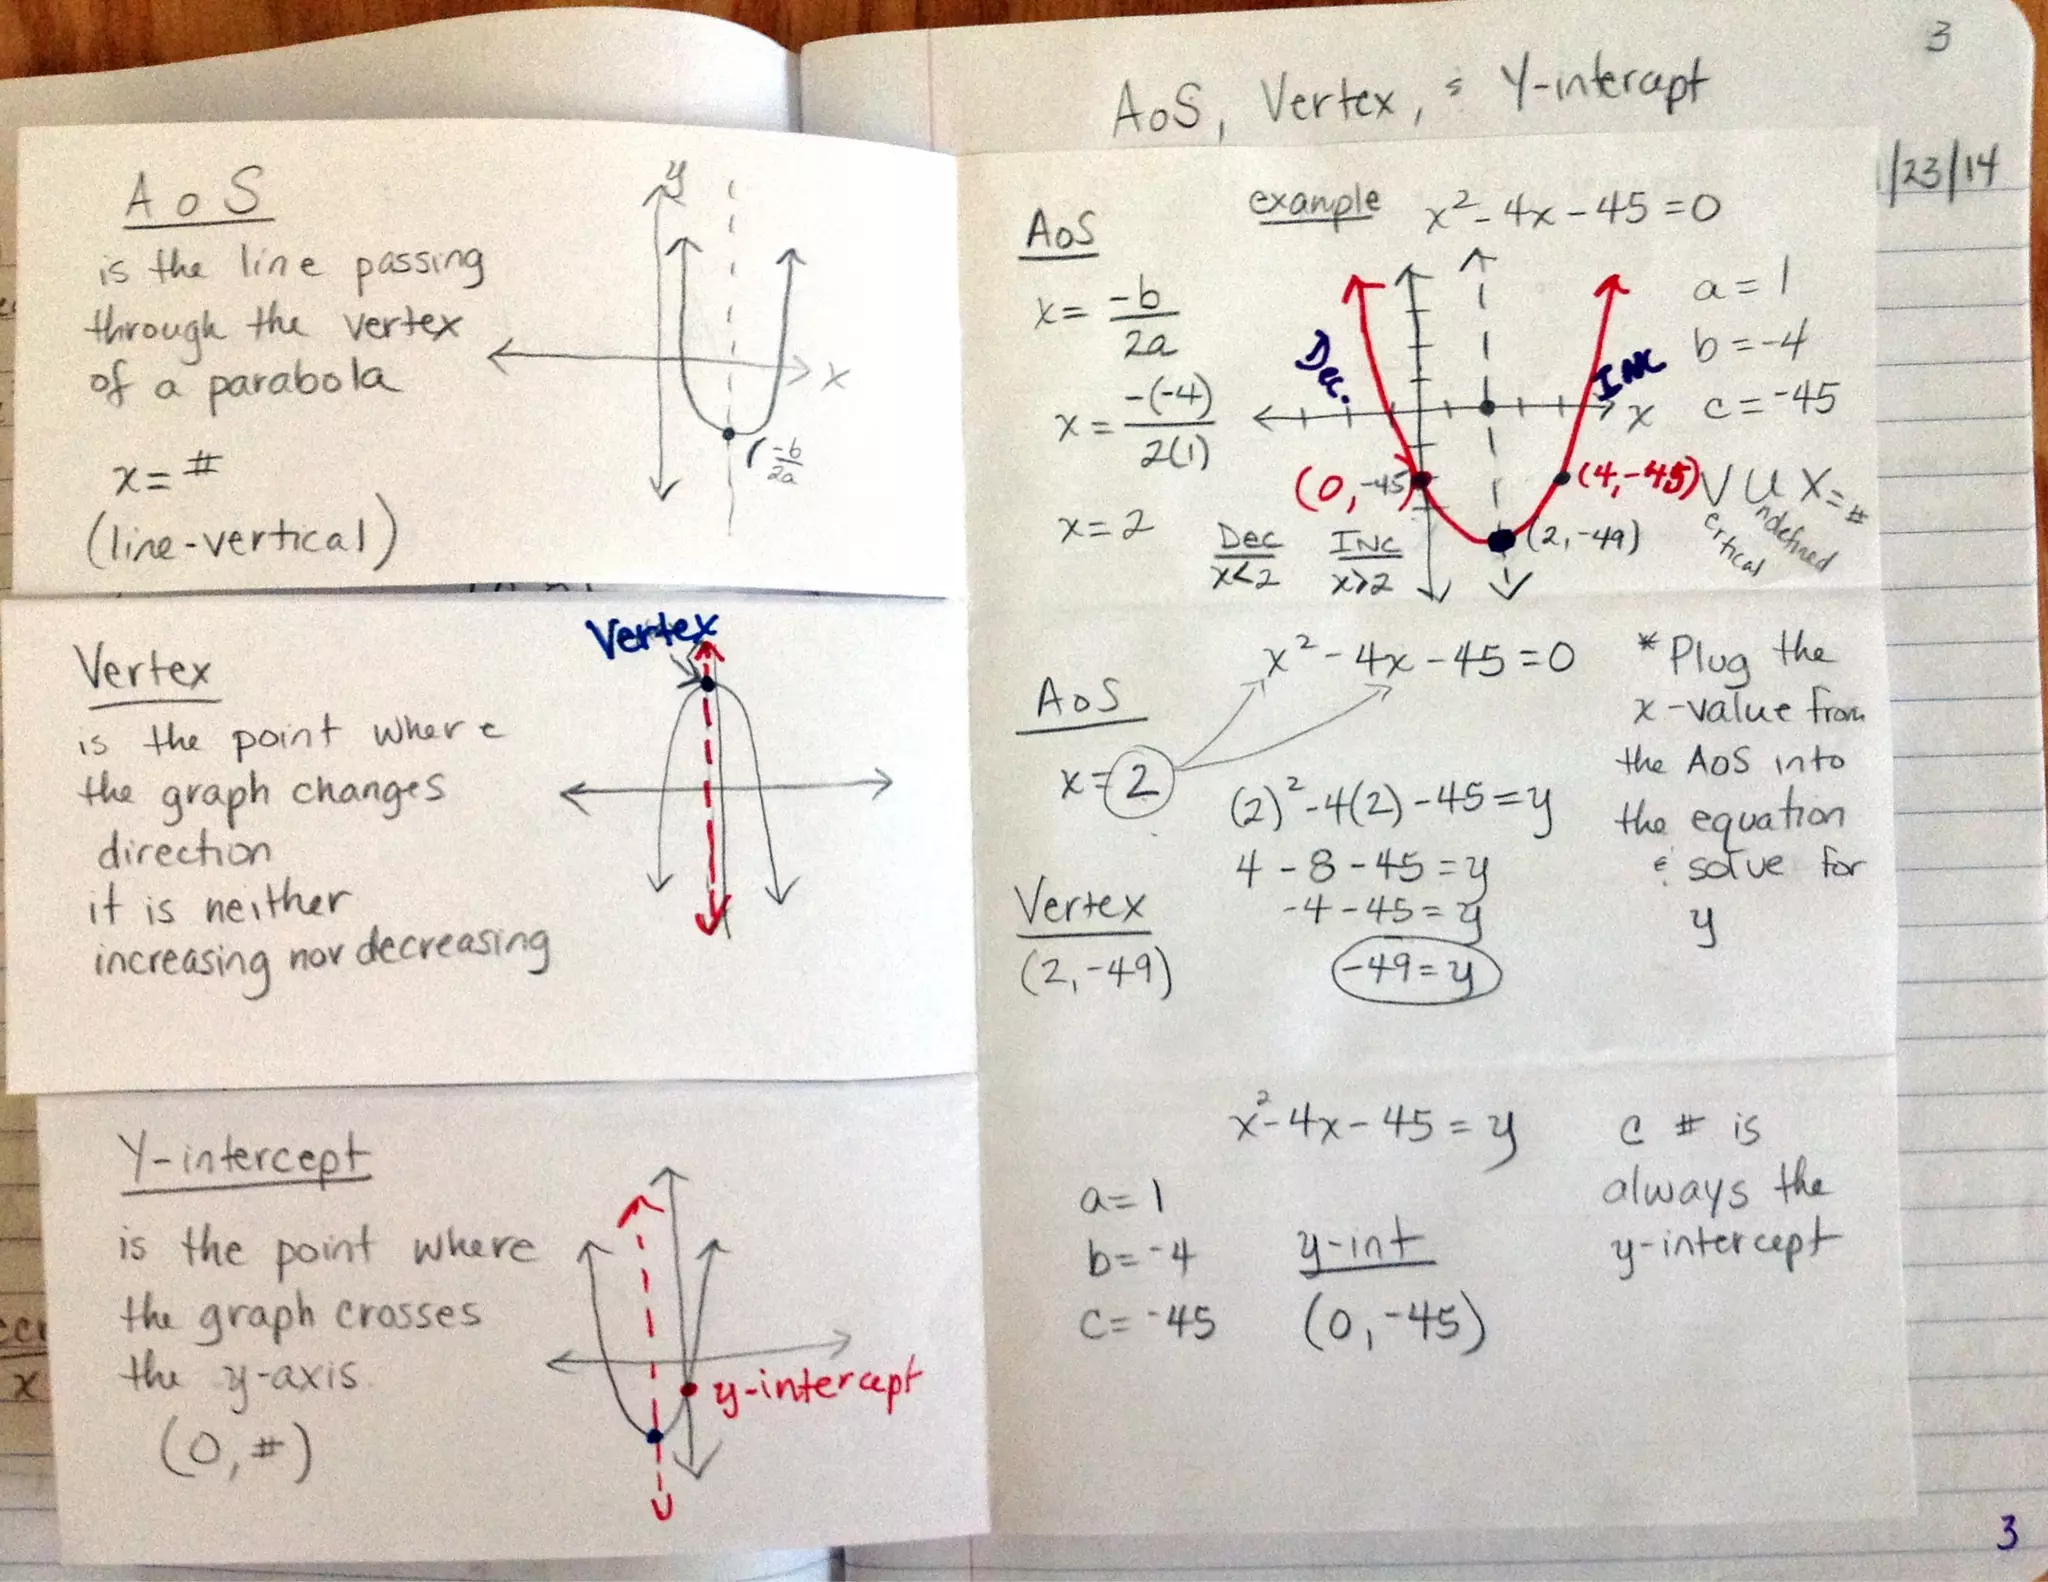 3
AoS, Vertex, & Y-intercept
/23/14
AoS
is the line passing
through the vertex
of a parabola
x = #
(line-vertical)
y
x
(-b/2a
AoS
x = -b/2a
x = -(-4)/2(1)
x = 2
example x² - 4x - 45 = 0
a = 1
b = -4
c = -45
Dec.
INC
x
(0, -45)
(4, -45)
(2, -49)
Dec
x<2
INC
x>2
V U X = #
Vertical
Undefined
Vertex
is the point where
the graph changes
direction
it is neither
increasing nor decreasing
Vertex
AoS
x = 2
Vertex
(2, -49)
x² - 4x - 45 = 0
(2)² - 4(2) - 45 = y
4 - 8 - 45 = y
-4 - 45 = y
-49 = y
* Plug the
x-value from
the AoS into
the equation
& solve for
y
Y-intercept
is the point where
the graph crosses
the y-axis.
(0, #)
y-intercept
x² - 4x - 45 = y
a = 1
b = -4
c = -45
y-int
(0, -45)
c # is
always the
y-intercept
x
3